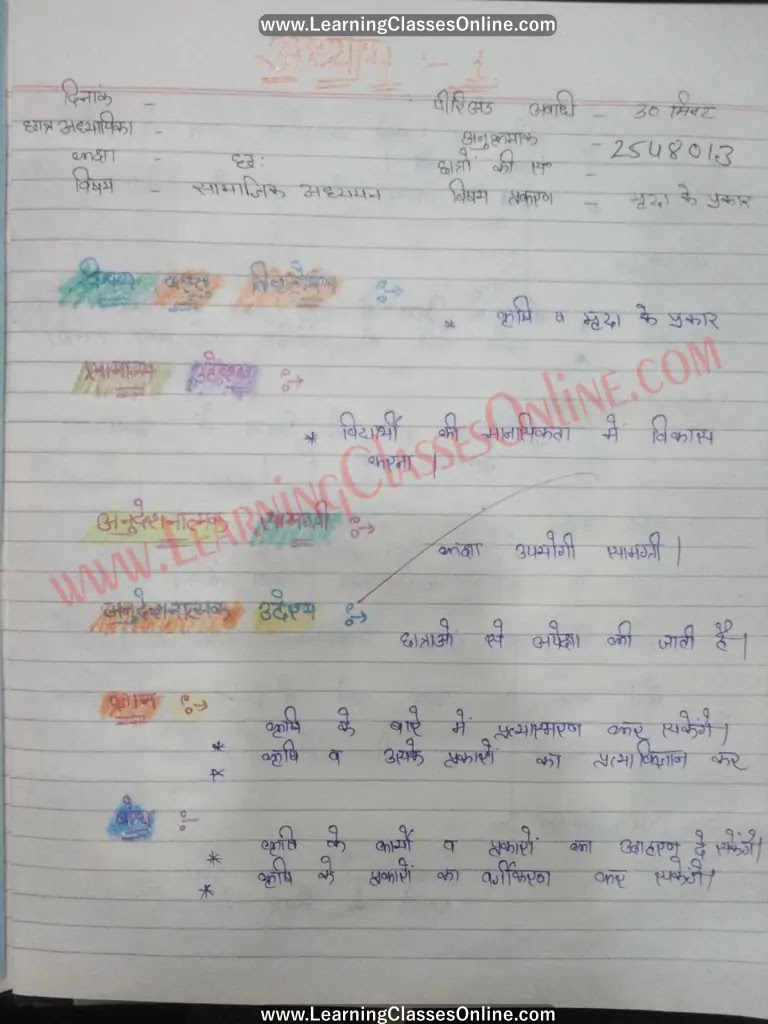 www.LearningClassesOnline.com
अध्याय :- 1
दिनांक - पीरिअड अवधि - 30 मिनट
छात्र अध्यापिका - अनुक्रमांक - 2548013
कक्षा - छठ: छात्रों की सं° -
विषय - सामाजिक अध्ययन विषय प्रकरण - मृदा के प्रकार
विषय वस्तु विश्लेषण :→
* कृषि व मृदा के प्रकार
सामान्य उद्देश्य :→
* विद्यार्थी की मानसिकता में विकास
करना।
अनुदेशनात्मक सामग्री :→
कक्षा उपयोगी सामग्री।
अनुदेशनात्मक उद्देश्य :→
छात्राओं से अपेक्षा की जाती है।
ज्ञान :→
* कृषि के बारे में प्रत्यास्मरण कर सकेंगे।
* कृषि व उसके प्रकारों का प्रत्याभिज्ञान कर
बोध :-
* कृषि के कार्यो व प्रकारों का उदाहरण दे सकेंगे।
* कृषि के प्रकारों का वर्गीकरण कर सकेंगे।
www.LearningClassesOnline.com
www.LearningClassesOnline.com